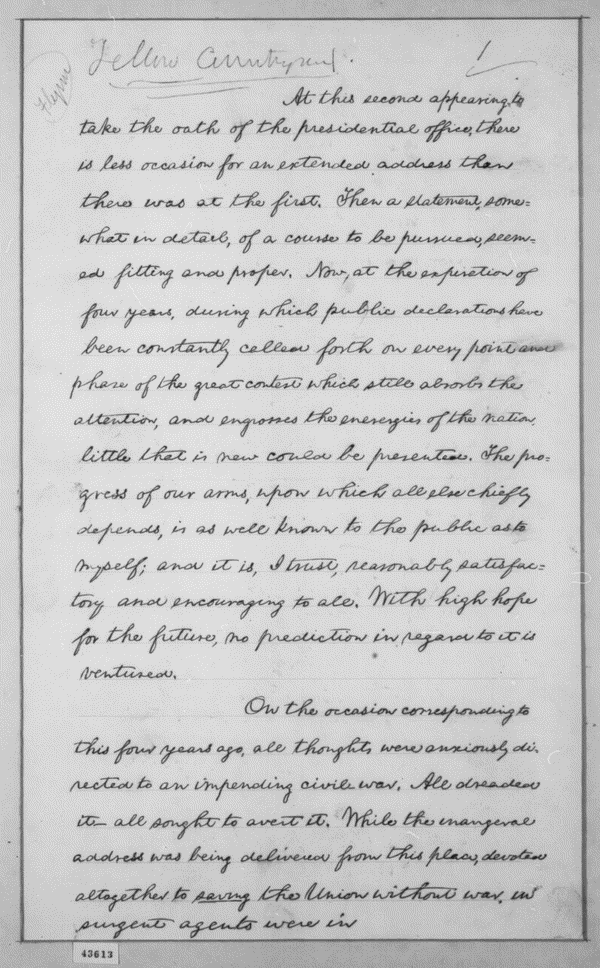 Fellow Countrymen.
1
At this second appearing to
take the oath of the presidential office, there
is less occasion for an extended address than
there was at the first. Then a statement, some=
what in detail, of a course to be pursued, seem=
ed fitting and proper. Now, at the expiration of
four years, during which public declarations have
been constantly called forth on every point and
phase of the great contest which still absorbs the
attention, and engrosses the enerergies of the nation,
little that is new could be presented. The pro=
gress of our arms, upon which all else chiefly
depends, is as well known to the public as to
myself; and it is, I trust, reasonably satisfac=
tory and encouraging to all. With high hope
for the future, no prediction in regard to it is
ventured.
On the occasion corresponding to
this four years ago, all thoughts were anxiously di-
rected to an impending civil war. All dreaded
it— all sought to avert it. While the inaugeral
address was being delivered from this place, devoted
altogether to saving the Union without war, in
surgent agents were in
43613